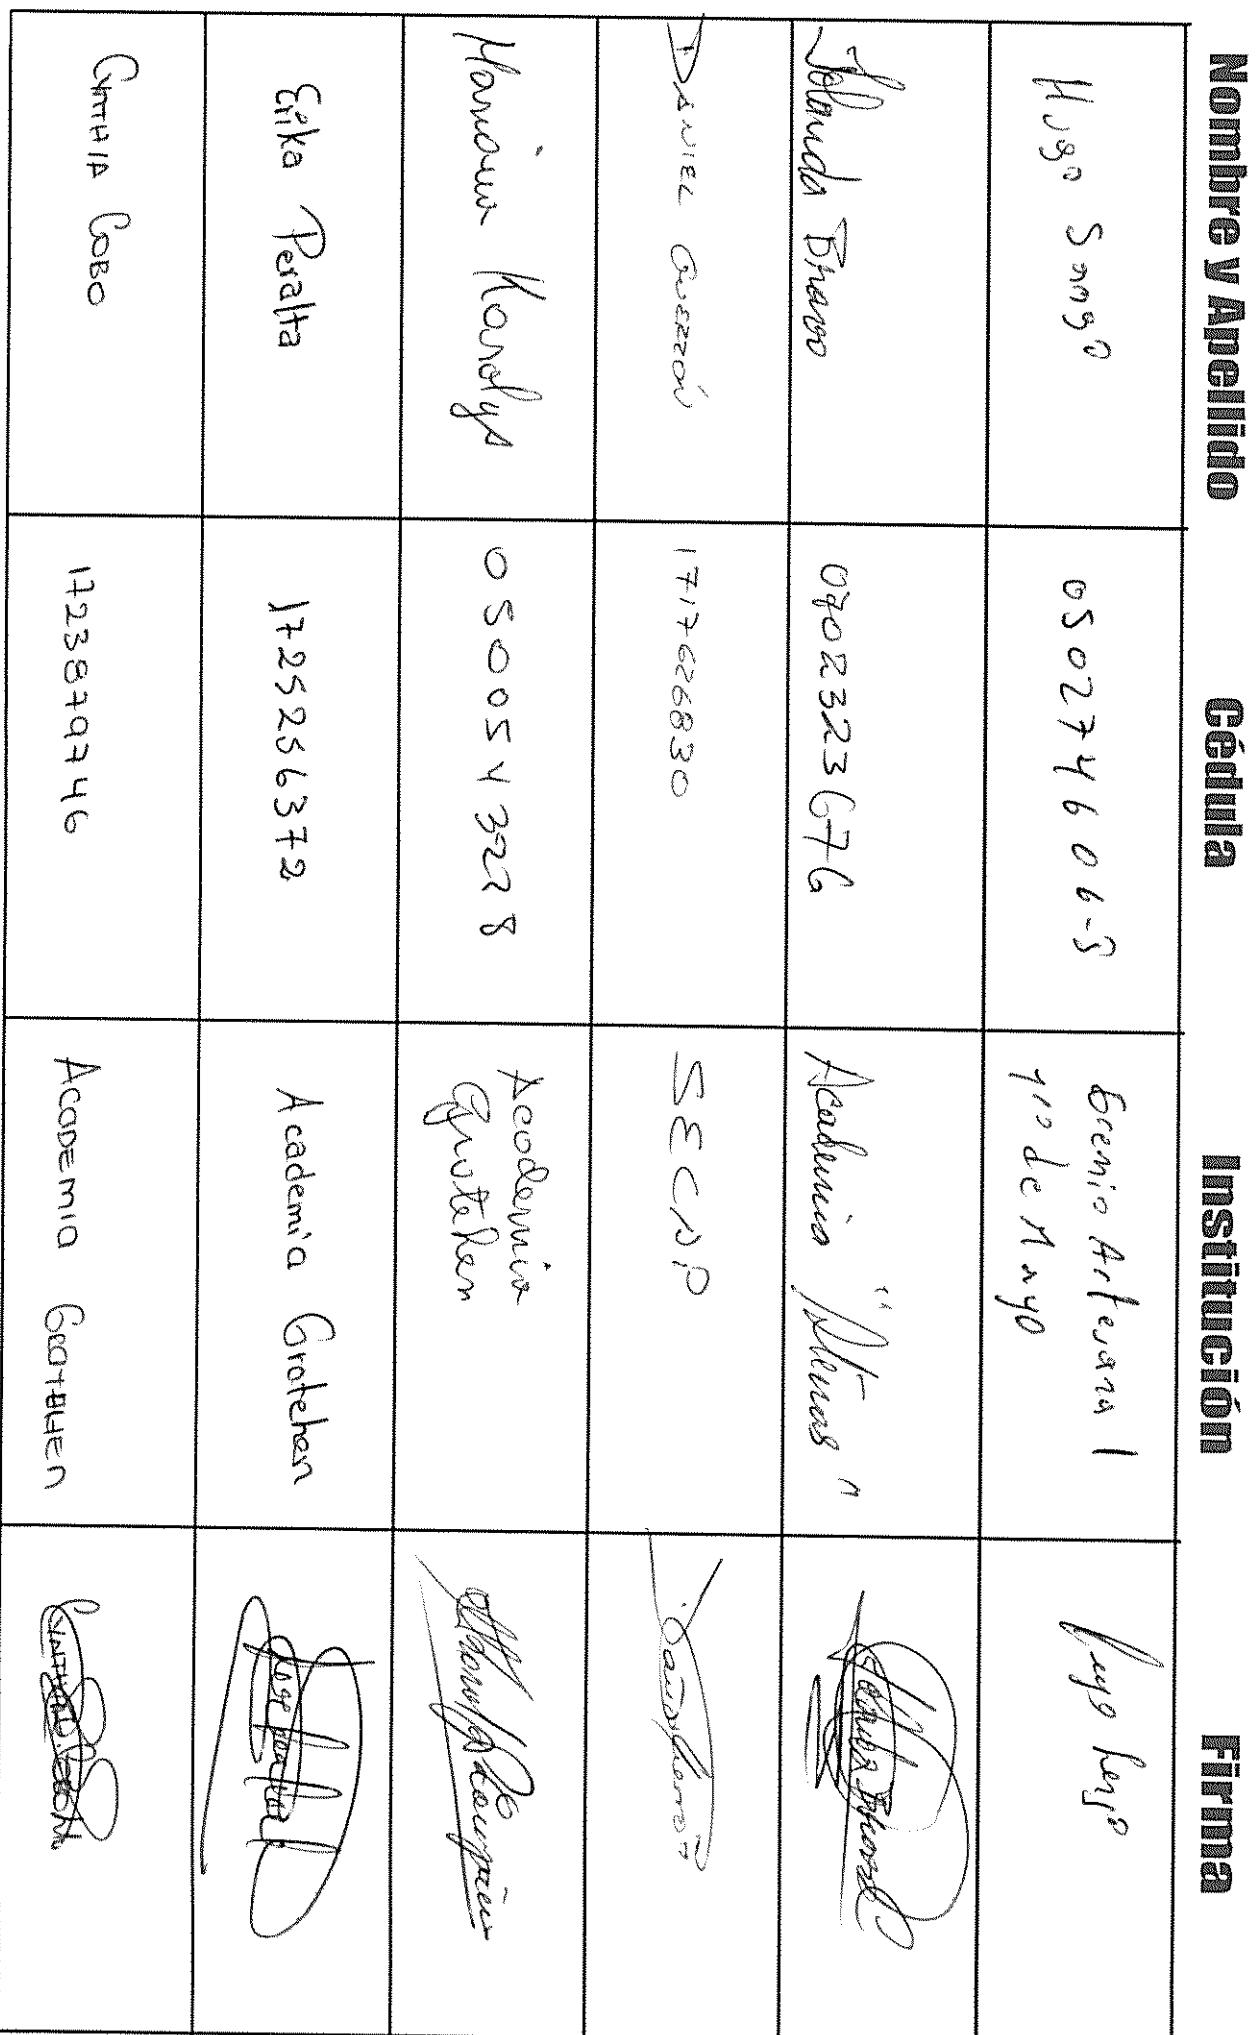 Nombre y Apellido Cédula Institución Firma
Hugo Sango 050274606-5 Gremio Artesanal
1ro de Mayo
Yolanda Bravo 0702323676 Academia "Atenas"
DANIEL GUERRÓN 1717626830 SECAP
Mariana Karolys 0500543228 Academia
Grotehen
Erika Peralta 1725256372 Academia Grotehen
CYNTHIA COBO 1723879746 ACADEMIA GROTEHEN